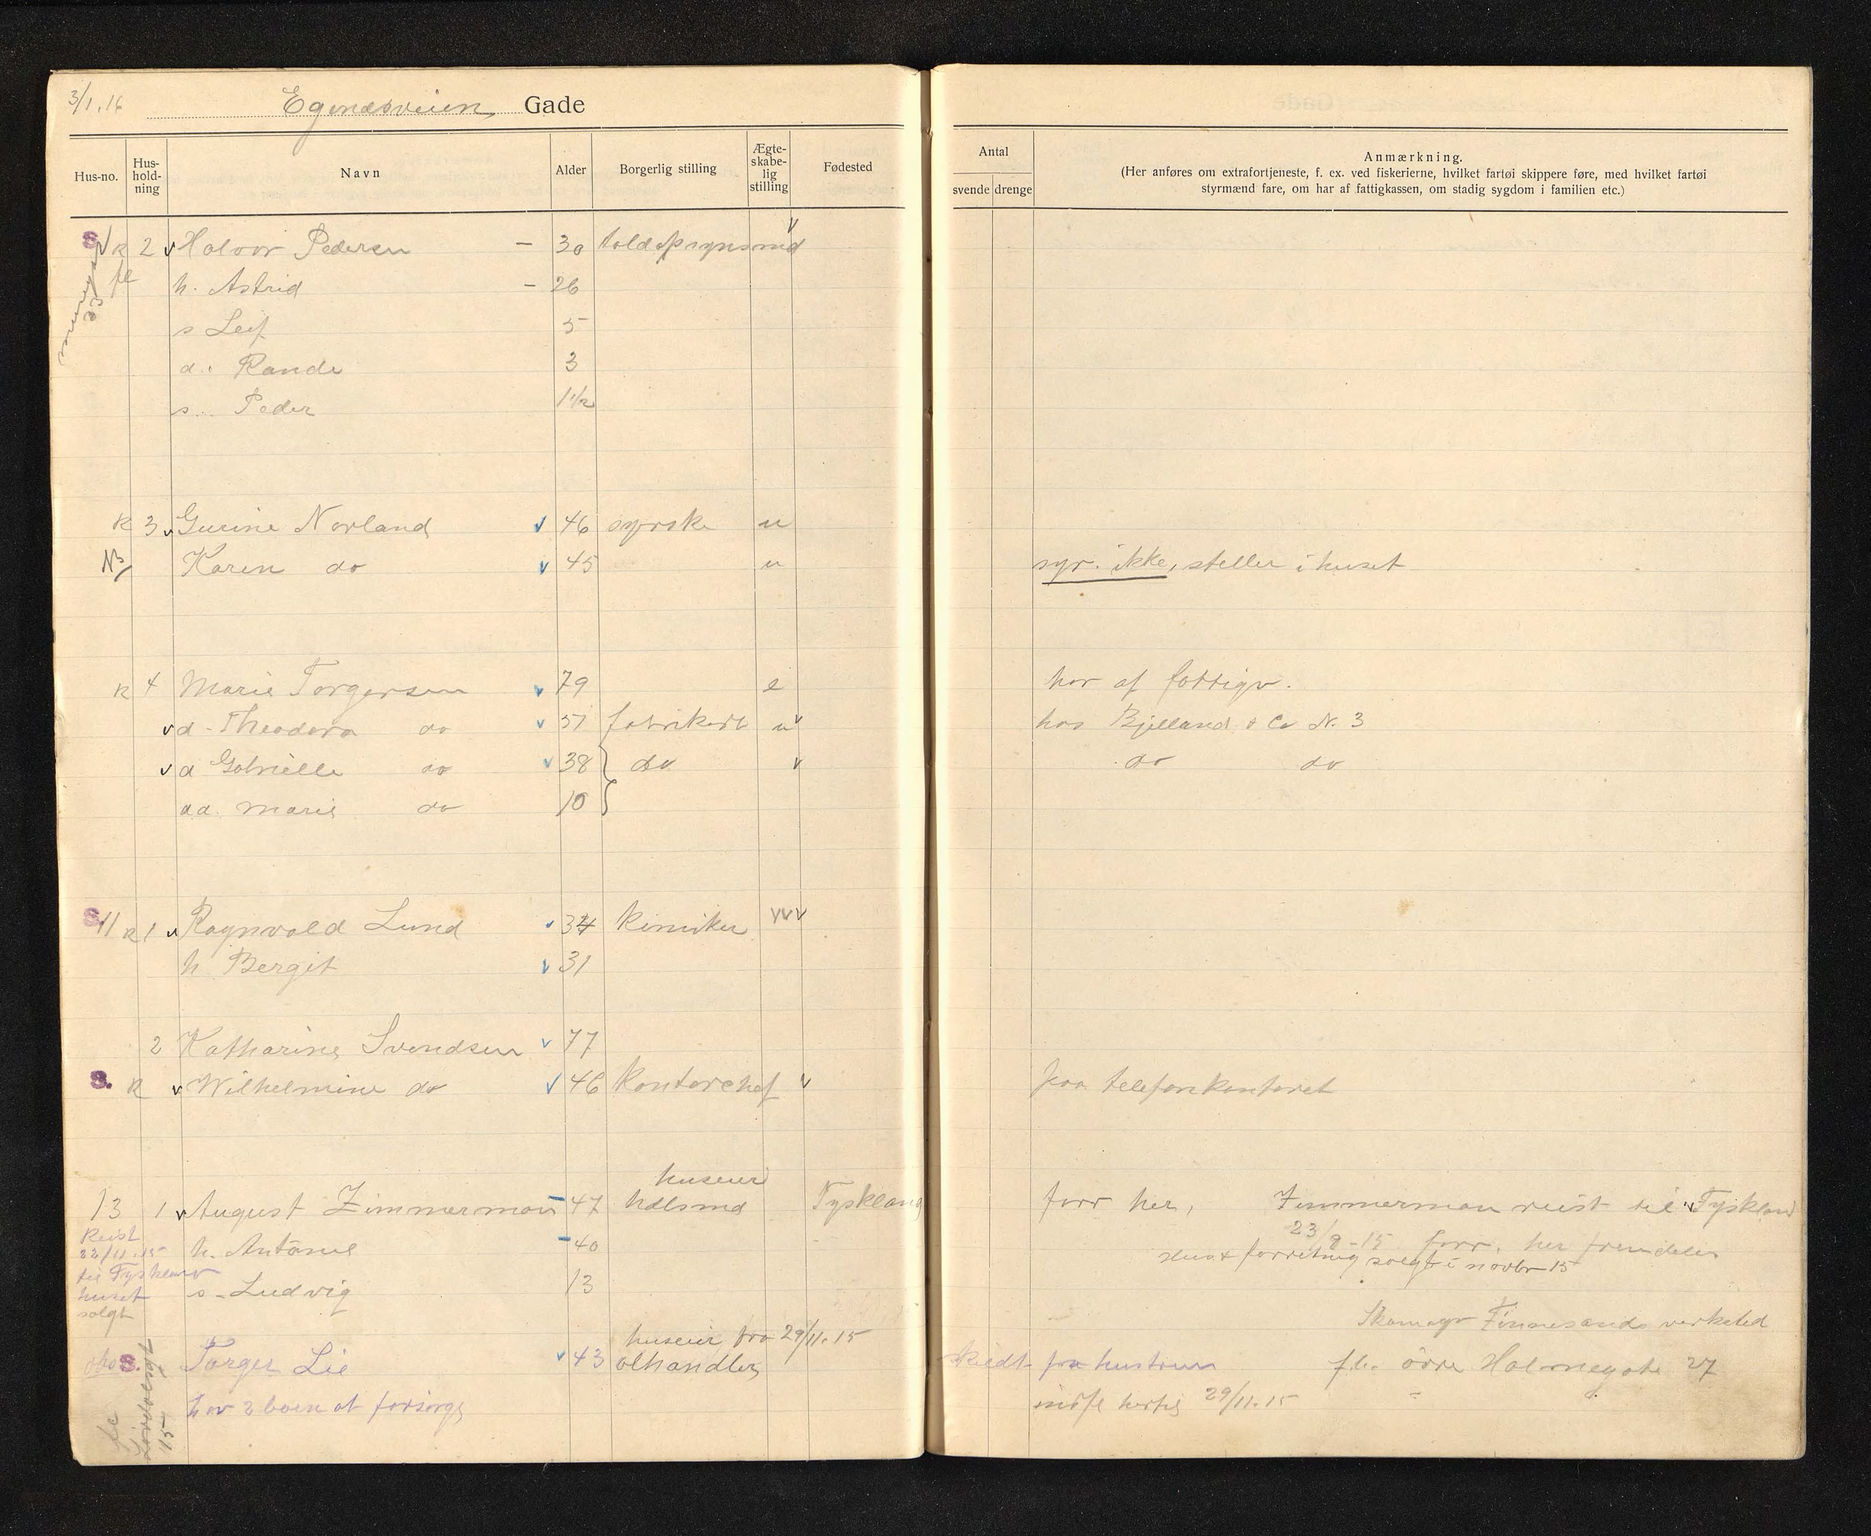 3/1.16 Egenæsveien Gade
Hus-no. Hus-hold-ning Navn Alder Borgerlig stilling Ægte-skabe-lig stilling Fødested
Antal svende drenge
Anmærkning.
(Her anføres om extrafortjeneste, f. ex. ved fiskerierne, hvilket fartøi skippere føre, med hvilket fartøi
styrmænd fare, om har af fattigkassen, om stadig sygdom i familien etc.)
S R 2 v Halvor Pedersen — 30 toldopsynsmd v
fl h. Astrid — 26
33
s Leif 5
d. Rande 3
s. Peder 1 1/2
R 3 v Gurine Norland v 46 syerske u
Karen do v 45 u syr. ikke, steller i huset
R 4 Marie Torgersen v 79 e har af fattigv.
v d. Theodora do v 51 fabrikarb u v hos Bjelland & Co N. 3
v d Gabrielle do v 38 do v do do
dd. Marie do 10
S 11 R 1 v Ragnvald Lund v 34 kemiker v v v
h Bergit v 31
2 Katharine Svendsen v 77
S. R v Wilhelmine do v 46 kontorchef v paa telefonkontoret
huseier
13 1 v August Zimmerman — 47 hdlsmd Tyskland forr her, Zimmerman reist til Tyskland
Reist
22/11.15 h. Antonie — 40 23/8-15 forr. her fremdeles
Hus & forretning solgt i novbr 15
til Tyskland
huset s. Ludvig 13
solgt
Skomagr Finnesands verksted
huseier fra 29/11.15
S. Torger Lie v 43 olhandler skildt fra hustruen f.b. øvre Holmegate 27
har 2 barn at forsørge indfl hertil 29/11.15
15